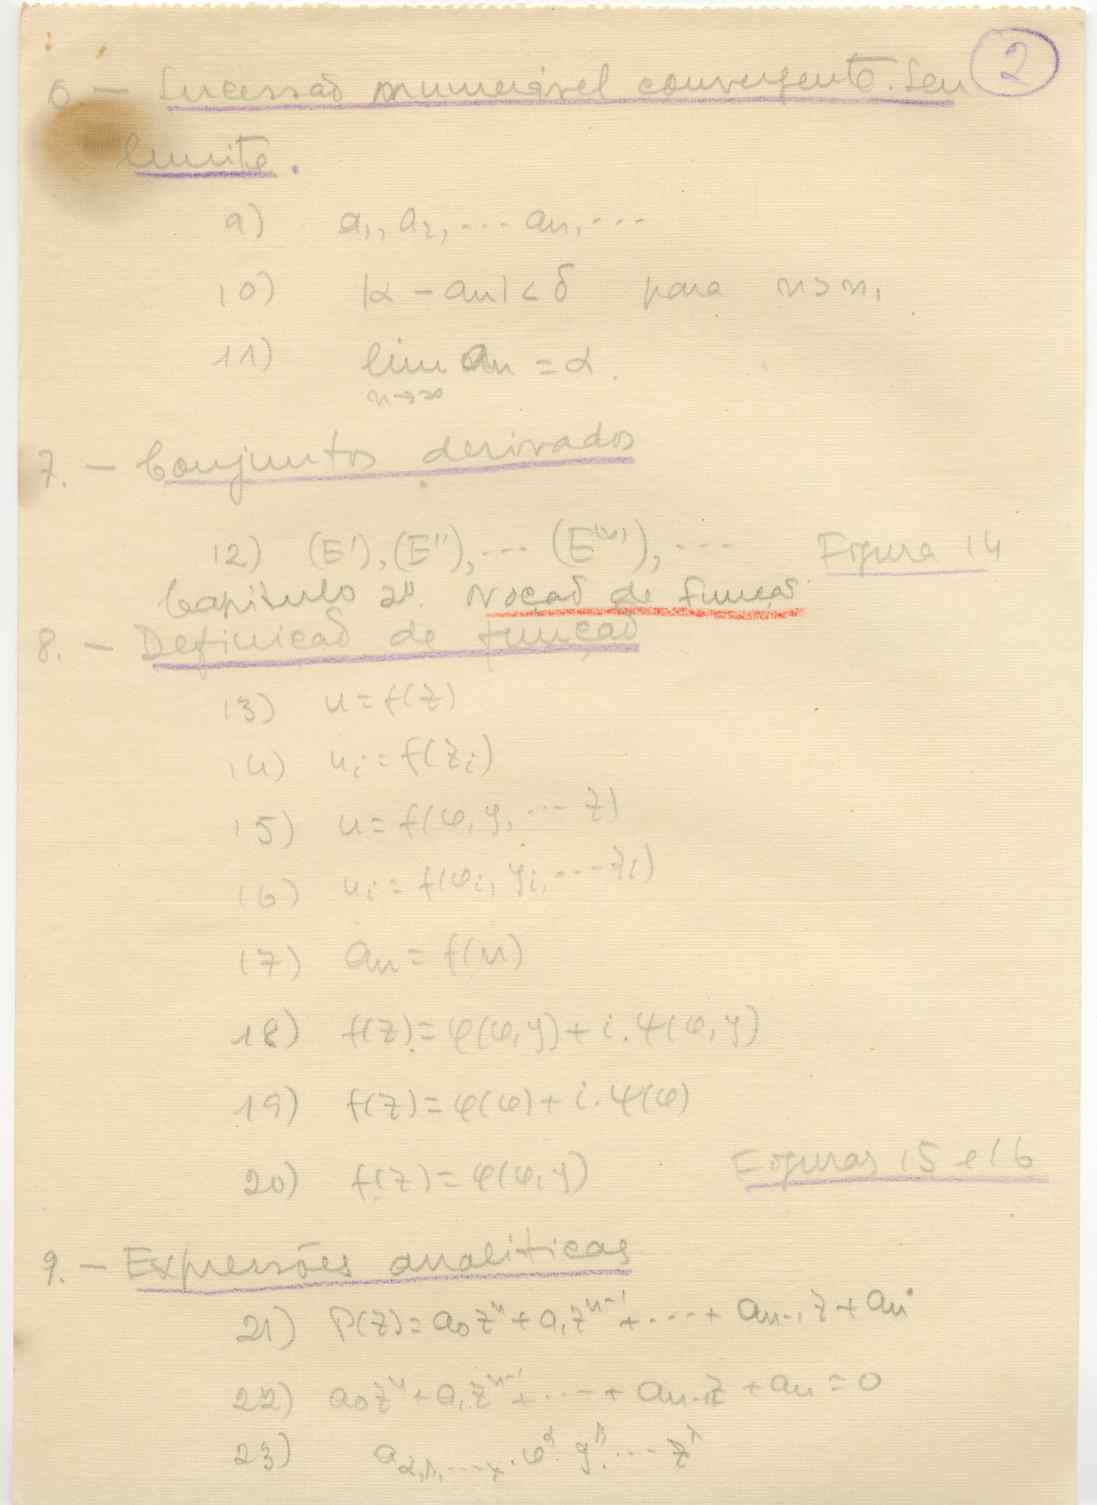 2
6 - Sucessão numerável convergente. Seu
limite.
9) a₁, a₂, ... aₙ, ...
10) |α - aₙ| < δ para n > n₁
11) lim aₙ = α.
n→∞
7. - Conjuntos derivados
12) (E'), (E''), ... (E⁽ⁿ⁾), ... Figura 14
Capitulo 2º. Noção de função
8. - Definição de função
13) u = f(z)
14) uᵢ = f(zᵢ)
15) u = f(x, y, ... z)
16) uᵢ = f(xᵢ, yᵢ, ... zᵢ)
17) aₙ = f(n)
18) f(z) = φ(x, y) + i.ψ(x, y)
19) f(z) = φ(x) + i.ψ(x)
20) f(z) = φ(x, y) Figuras 15 e 16
9. - Expressões analíticas
21) P(z) = a₀zⁿ + a₁zⁿ⁻¹ + ... + aₙ₋₁z + aₙ
22) a₀zⁿ + a₁zⁿ⁻¹ + ... + aₙ₋₁z + aₙ = 0
23) a α,β,...λ . x^α . y^β ... z^λ